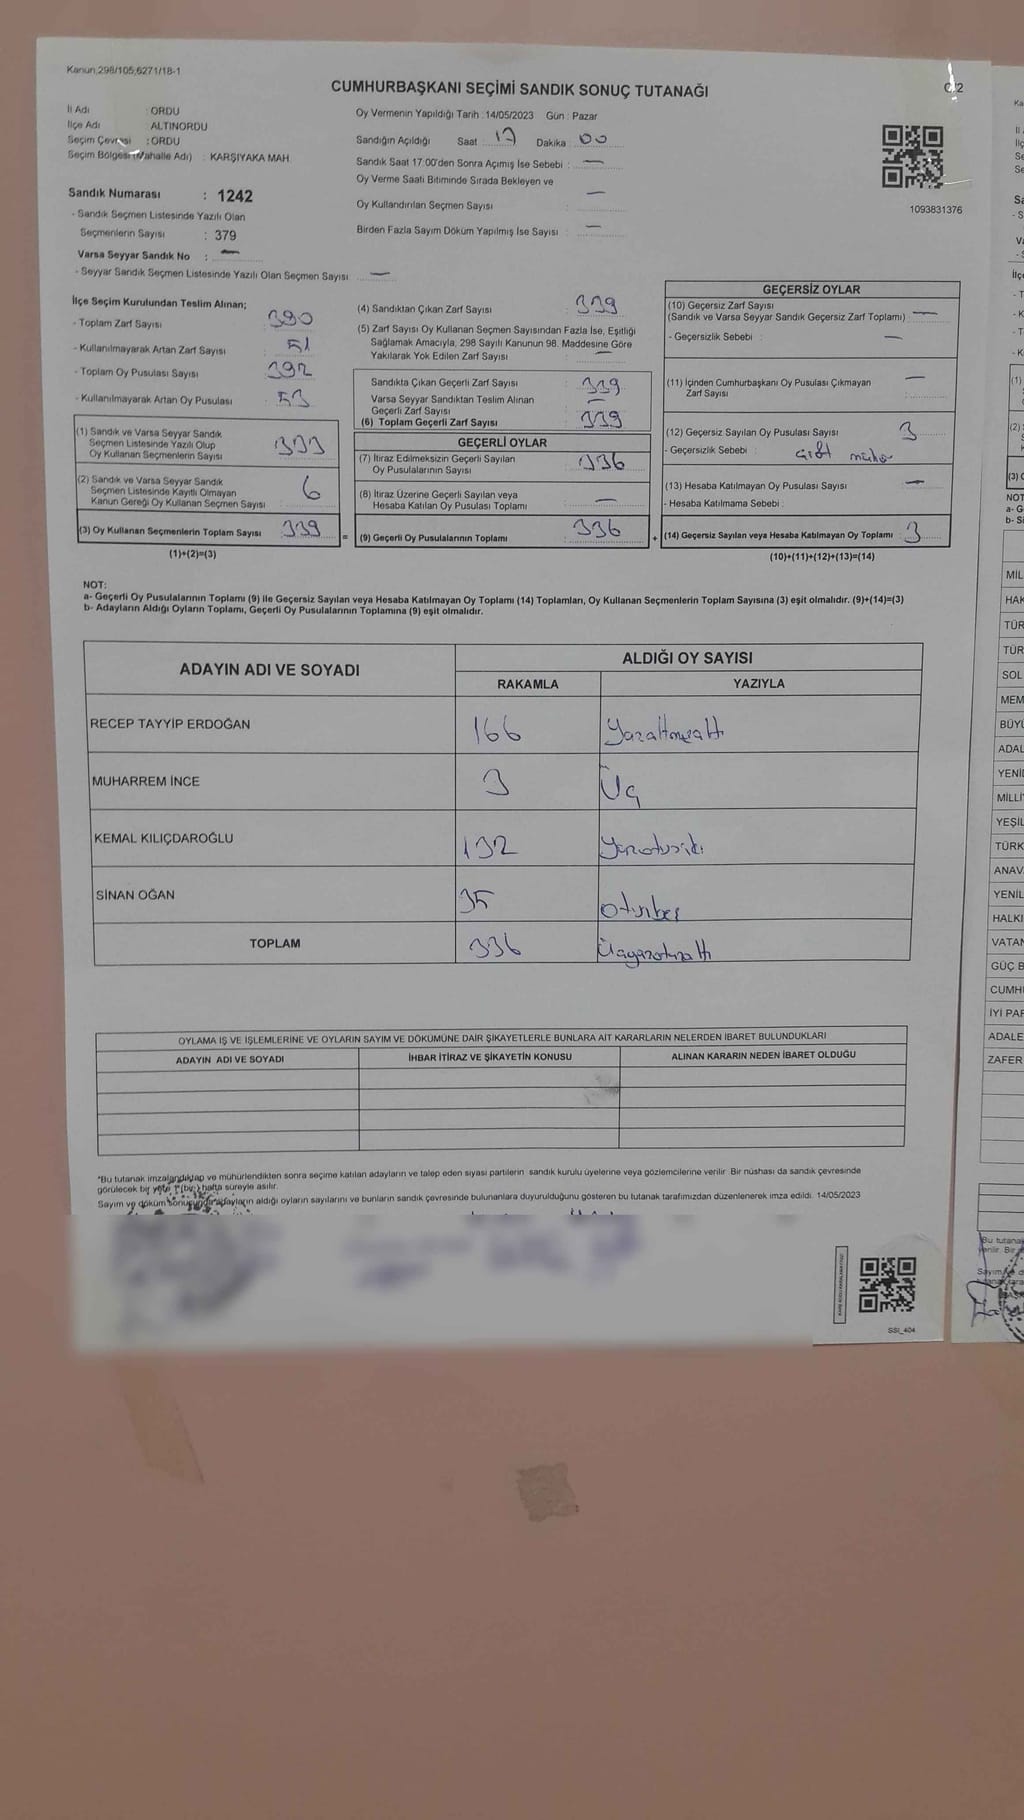 Kanun:298/105,6271/18-1
CUMHURBAŞKANI SEÇİMİ SANDIK SONUÇ TUTANAĞI
İl Adı : ORDU
İlçe Adı : ALTINORDU
Seçim Çevresi : ORDU
Seçim Bölgesi (Mahalle Adı) : KARŞIYAKA MAH.
Oy Vermenin Yapıldığı Tarih :14/05/2023 Gün : Pazar
Sandığın Açıldığı Saat 17 Dakika 00
Sandık Saat 17.00'den Sonra Açımış İse Sebebi : —
Oy Verme Saati Bitiminde Sırada Bekleyen ve
Oy Kullandırılan Seçmen Sayısı : —
Birden Fazla Sayım Döküm Yapılmış İse Sayısı : —
1093831376
Sandık Numarası : 1242
- Sandık Seçmen Listesinde Yazılı Olan
Seçmenlerin Sayısı : 379
Varsa Seyyar Sandık No : —
- Seyyar Sandık Seçmen Listesinde Yazılı Olan Seçmen Sayısı —
İlçe Seçim Kurulundan Teslim Alınan;
- Toplam Zarf Sayısı 390
- Kullanılmayarak Artan Zarf Sayısı 51
- Toplam Oy Pusulası Sayısı 392
- Kullanılmayarak Artan Oy Pusulası 53
(1) Sandık ve Varsa Seyyar Sandık
Seçmen Listesinde Yazılı Olup
Oy Kullanan Seçmenlerin Sayısı 333
(2) Sandık ve Varsa Seyyar Sandık
Seçmen Listesinde Kayıtlı Olmayan
Kanun Gereği Oy Kullanan Seçmen Sayısı 6
(3) Oy Kullanan Seçmenlerin Toplam Sayısı 339 =
(1)+(2)=(3)
(4) Sandıktan Çıkan Zarf Sayısı 339
(5) Zarf Sayısı Oy Kullanan Seçmen Sayısından Fazla İse, Eşitliği
Sağlamak Amacıyla, 298 Sayılı Kanunun 98. Maddesine Göre
Yakılarak Yok Edilen Zarf Sayısı —
Sandıkta Çıkan Geçerli Zarf Sayısı : 339
Varsa Seyyar Sandıktan Teslim Alınan
Geçerli Zarf Sayısı : —
(6) Toplam Geçerli Zarf Sayısı : 339
GEÇERLİ OYLAR
(7) İtiraz Edilmeksizin Geçerli Sayılan
Oy Pusulalarının Sayısı 336
(8) İtiraz Üzerine Geçerli Sayılan veya
Hesaba Katılan Oy Pusulası Toplamı —
(9) Geçerli Oy Pusulalarının Toplamı : 336 +
GEÇERSİZ OYLAR
(10) Geçersiz Zarf Sayısı
(Sandık ve Varsa Seyyar Sandık Geçersiz Zarf Toplamı) : —
- Geçersizlik Sebebi : —
(11) İçinden Cumhurbaşkanı Oy Pusulası Çıkmayan
Zarf Sayısı : —
(12) Geçersiz Sayılan Oy Pusulası Sayısı : 3
- Geçersizlik Sebebi : çift mühür
(13) Hesaba Katılmayan Oy Pusulası Sayısı : —
- Hesaba Katılmama Sebebi :
(14) Geçersiz Sayılan veya Hesaba Katılmayan Oy Toplamı : 3
(10)+(11)+(12)+(13)=(14)
NOT:
a- Geçerli Oy Pusulalarının Toplamı (9) ile Geçersiz Sayılan veya Hesaba Katılmayan Oy Toplamı (14) Toplamları, Oy Kullanan Seçmenlerin Toplam Sayısına (3) eşit olmalıdır. (9)+(14)=(3)
b- Adayların Aldığı Oyların Toplamı, Geçerli Oy Pusulalarının Toplamına (9) eşit olmalıdır.
ADAYIN ADI VE SOYADI ALDIĞI OY SAYISI
RAKAMLA YAZIYLA
RECEP TAYYİP ERDOĞAN 166 Yüzaltmışaltı
MUHARREM İNCE 3 Üç
KEMAL KILIÇDAROĞLU 132 Yüzotuziki
SİNAN OĞAN 35 otuzbeş
TOPLAM 336 Üçyüzotuzaltı
OYLAMA İŞ VE İŞLEMLERİNE VE OYLARIN SAYIM VE DÖKÜMÜNE DAİR ŞİKAYETLERLE BUNLARA AİT KARARLARIN NELERDEN İBARET BULUNDUKLARI
ADAYIN ADI VE SOYADI İHBAR İTİRAZ VE ŞİKAYETİN KONUSU ALINAN KARARIN NEDEN İBARET OLDUĞU
*Bu tutanak imzalandıktan ve mühürlendikten sonra seçime katılan adayların ve talep eden siyasi partilerin sandık kurulu üyelerine veya gözlemcilerine verilir. Bir nüshası da sandık çevresinde
görülecek bir yere 1 (bir) hafta süreyle asılır.
Sayım ve döküm sonucunda adayların aldığı oyların sayılarını ve bunların sandık çevresinde bulunanlara duyurulduğunu gösteren bu tutanak tarafımızdan düzenlenerek imza edildi. 14/05/2023
SSI_404
NOT
MİL
HAK
TÜR
TÜR
SOL
MEM
BÜYÜ
ADAL
YENİ
MİLLİ
YEŞİL
TÜRK
ANAV
YENİL
HALKI
VATAN
GÜÇ B
CUMH
İYİ PAR
ADALE
ZAFER
Bu tutana